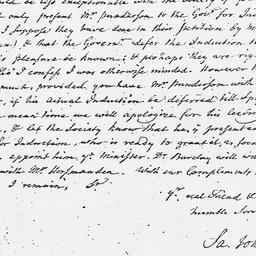 only present Mr Punderson to the Govr for In
I suppose they have done in their Petition by
& that the Governr defer the Induction
Pleasure be known; & perhaps they are rig
I confess I was otherwise minded. However
must, provided, you have Mr Punderson with
if his actual Induction be deferred till
mean time we will apologize for his
& let the Society know that he is present
for Induction, who is ready to grant it, as, soon
appoint him ye Minister. Dr Barclay will wa
with Mr Horsmanden. With our Complements
I remain, Sr
yr real Friend &
humble Ser
Sa. Joh